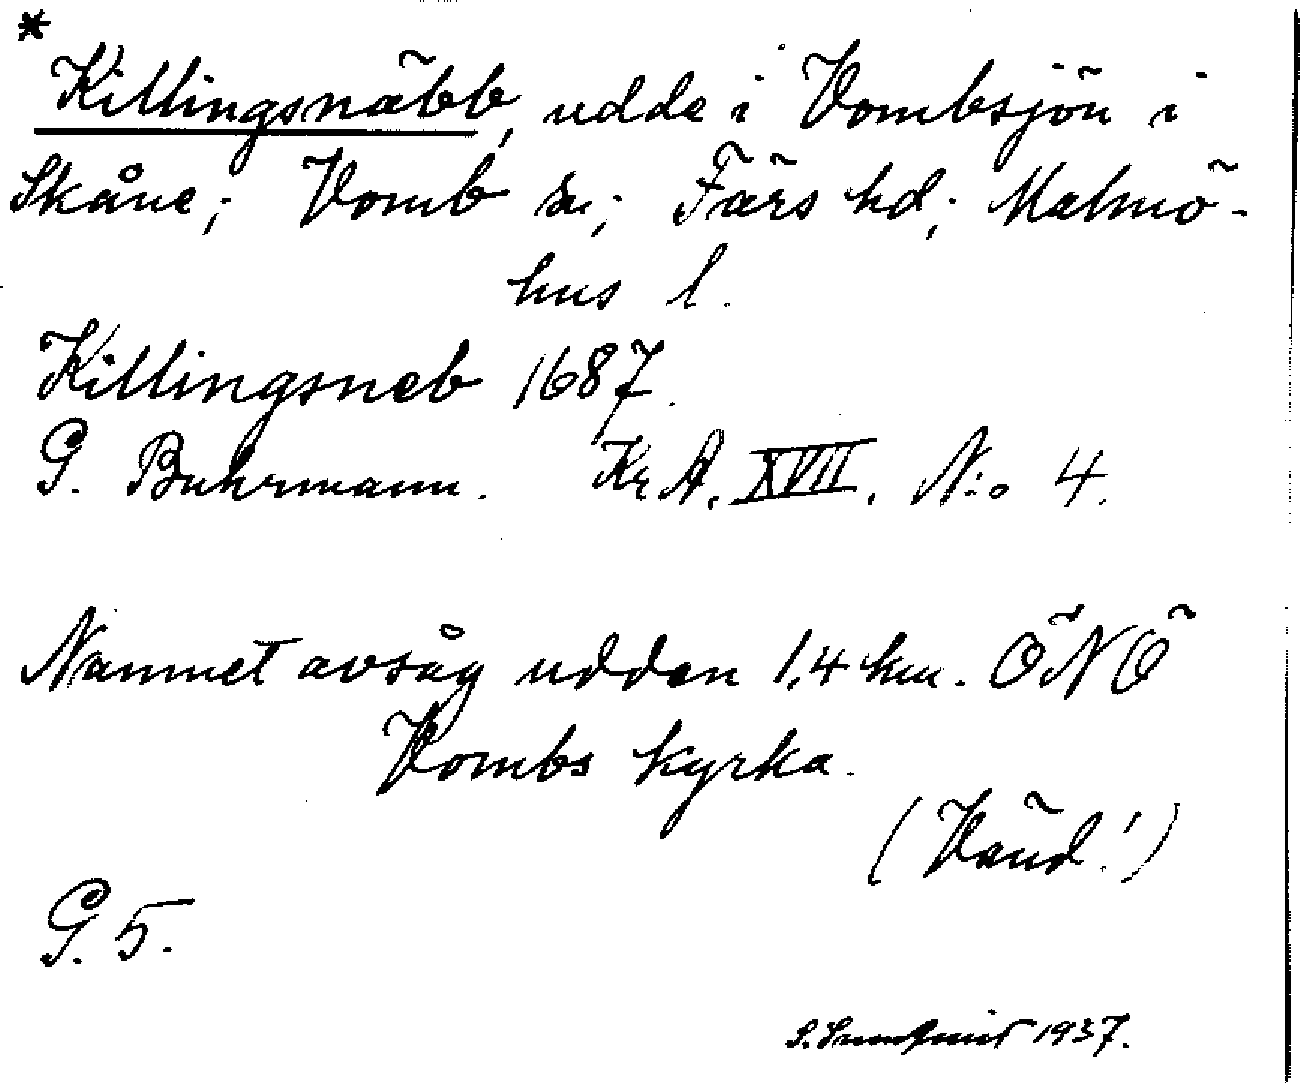 *
Killingsnäbb, udde i Vombsjön i
Skåne; Vomb sn; Färs hd; Malmö-
hus l.
Killingsneb 1687.
G. Buhrmann. Kr A. XVII. N:o 4.
Namnet avsåg udden 1,4 km. ÖNÖ
Vombs kyrka.
(Vänd!)
G. 5.
S. Sundquist 1937.